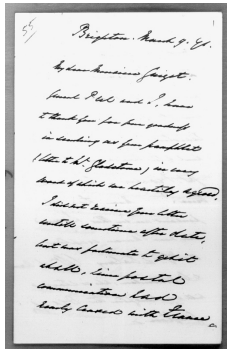 Brighton. March 9. 71.
My dear Monsieur Guizot.
General Peel and I, have
to thank you for your goodness
in sending us your pamphlet
(letter to Mr. Gladstone) in every
word of which we heartily agreed.
I did not receive your letter
until sometime after date,
but was fortunate to get it
at all, since postal
communication had
ceased with France